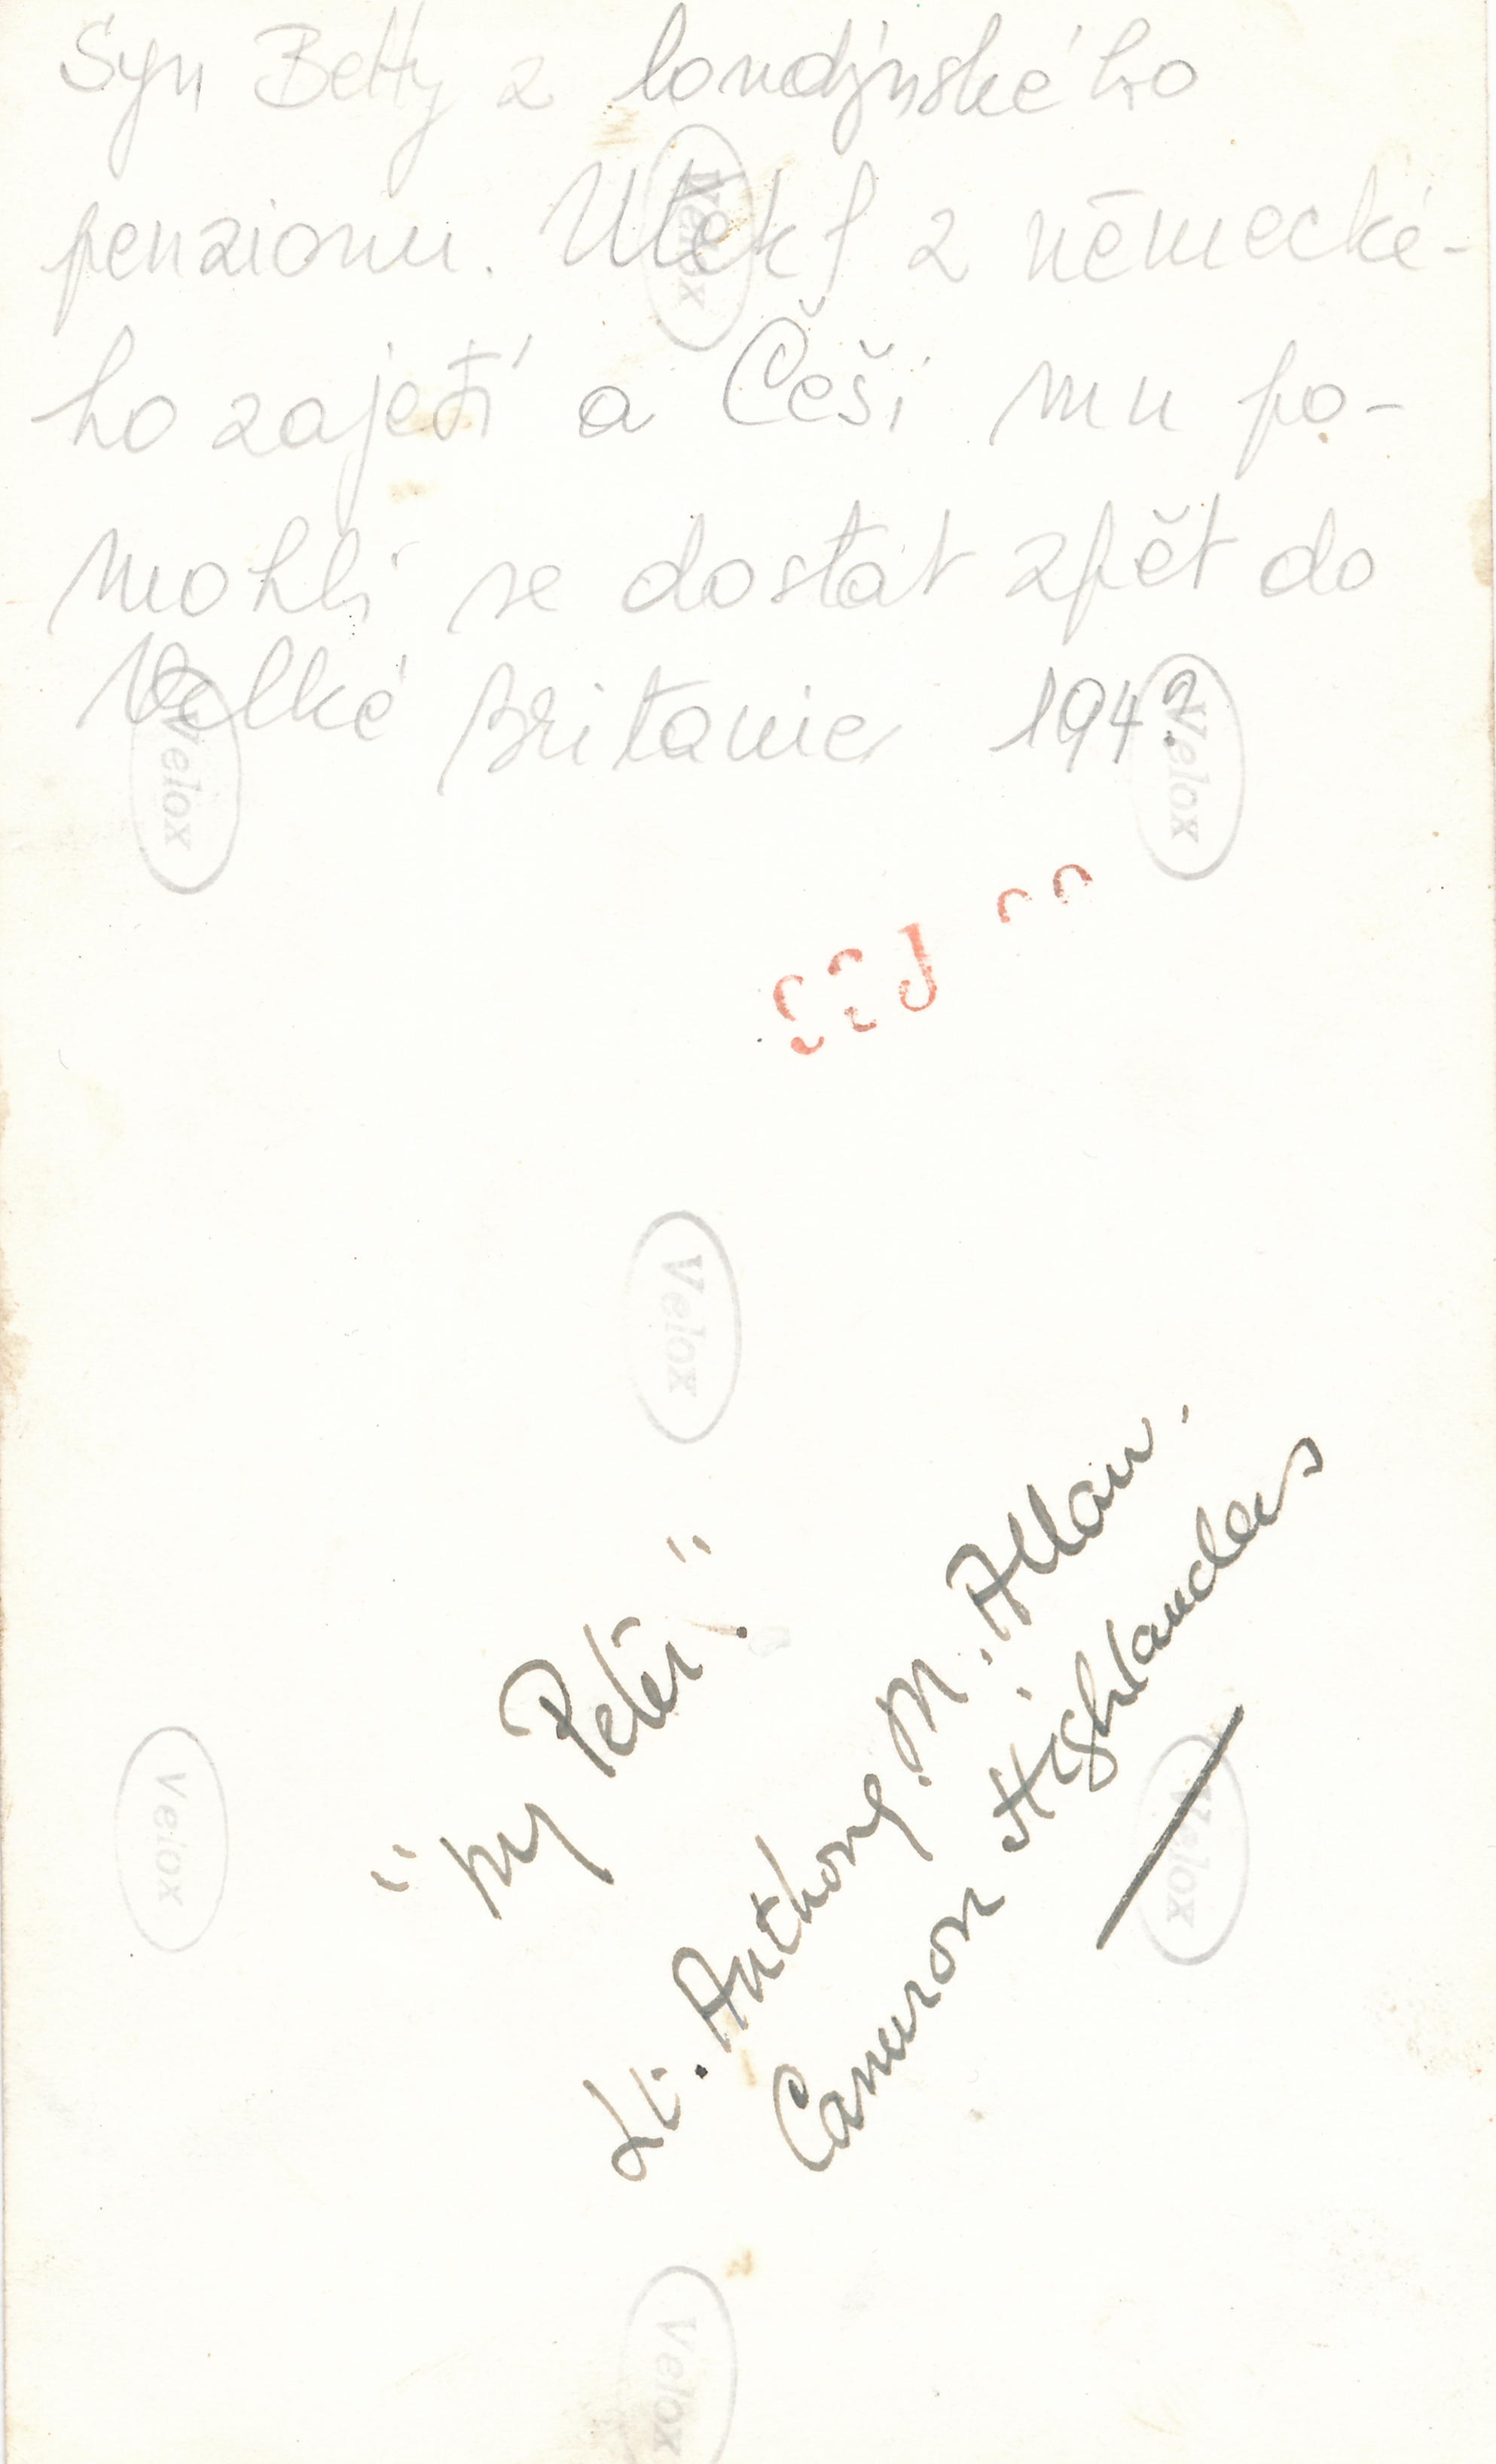 Syn Betty z londýnského
penzionu. Utekl z německé-
ho zajetí a Češi mu po-
mohli se dostat zpět do
Velké Britanie 194?
Velox
Velox
Velox
Velox
"My Peter."
Lt. Anthony. M. Allan.
Cameron Highlanders
Velox
Velox
Velox